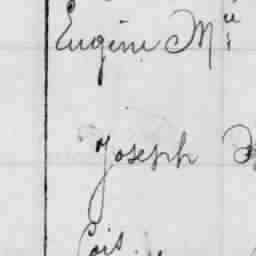 Eugène M^ie
Joseph
Cois